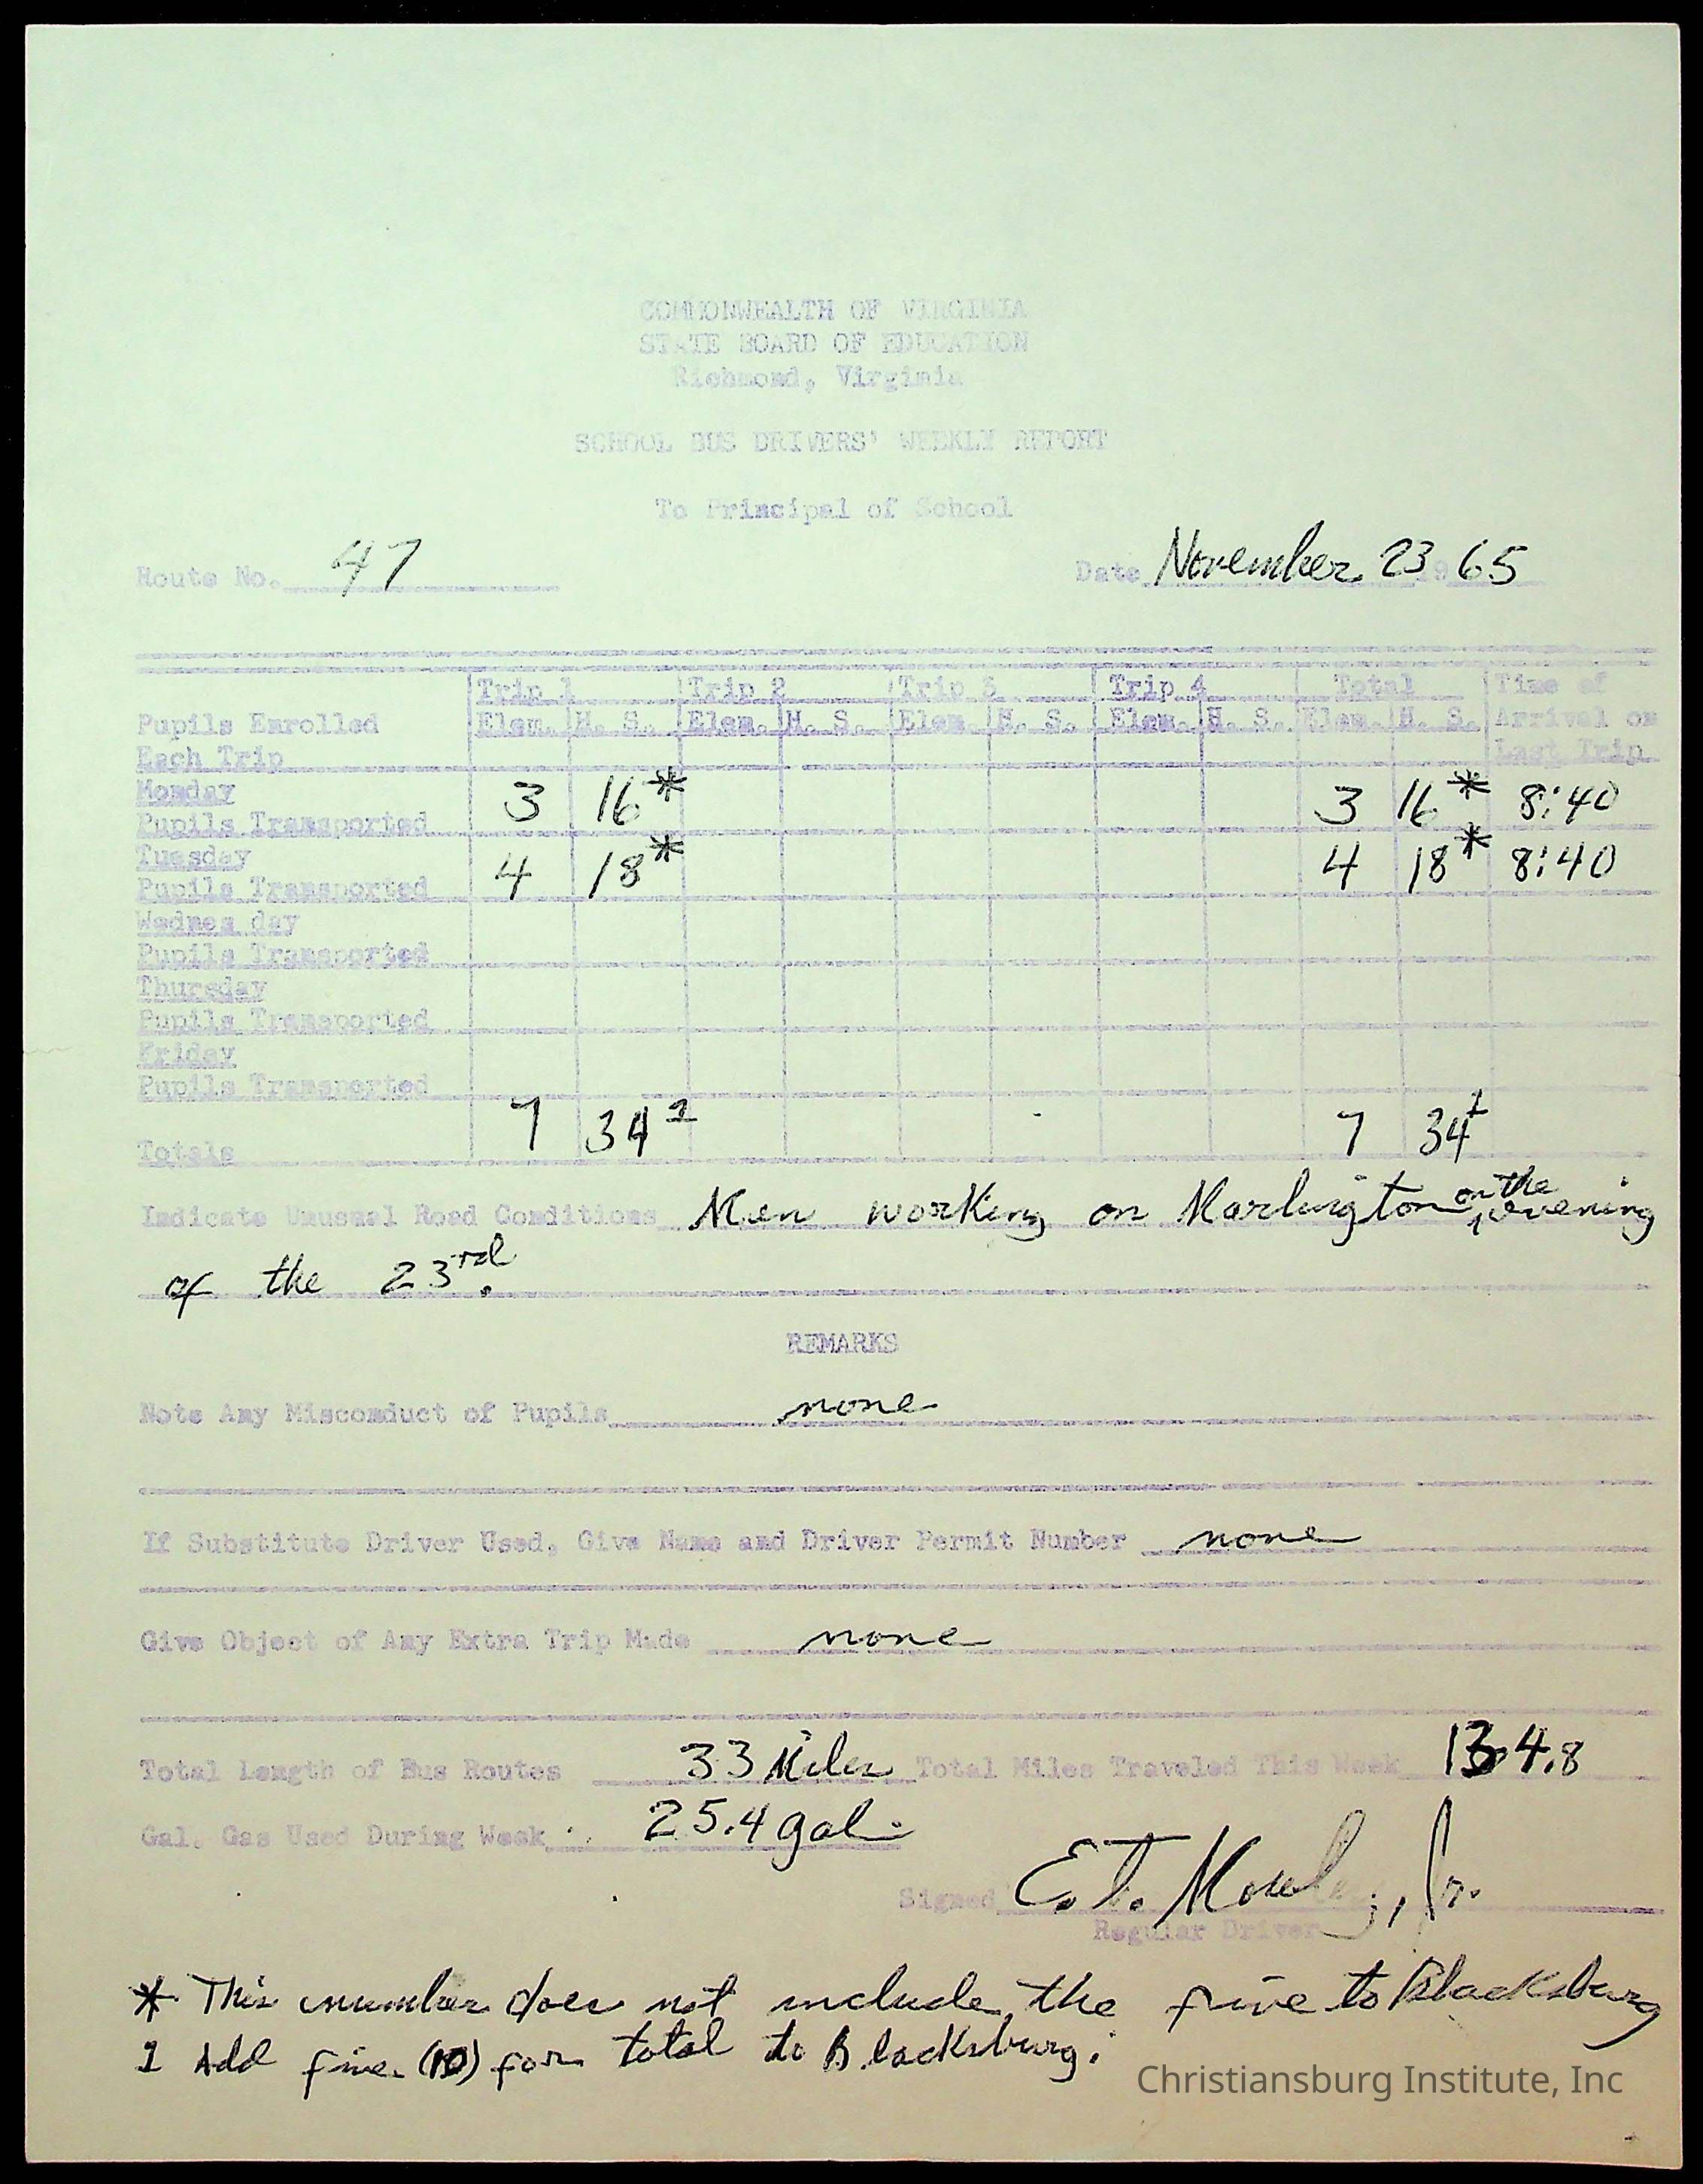 COMMONWEALTH OF VIRGINIA
STATE BOARD OF EDUCATION
Richmond, Virginia
SCHOOL BUS DRIVERS' WEEKLY REPORT
To Principal of School
Route No. 47 Date November 23 1965
Trip 1 Trip 2 Trip 3 Trip 4 Total Time of
Pupils Enrolled Elem. H. S. Elem. H. S. Elem. H. S. Elem. H. S. Elem. H. S. Arrival on
Each Trip Last Trip
Monday
Pupils Transported 3 16* 3 16* 8:40
Tuesday
Pupils Transported 4 18* 4 18* 8:40
Wednesday
Pupils Transported
Thursday
Pupils Transported
Friday
Pupils Transported
Totals 7 34 1 7 34 1
Indicate Unusual Road Conditions Men working on Marlington on the evening
of the 23rd.
REMARKS
Note Any Misconduct of Pupils none
If Substitute Driver Used, Give Name and Driver Permit Number none
Give Object of Any Extra Trip Made none
Total Length of Bus Routes 33 Miles Total Miles Traveled This Week 134.8
Gal. Gas Used During Week 25.4 gal.
Signed E. T. , Jr.
Regular Driver
* This number does not include the five to Blacksburg
1 Add five (10) for total to Blacksburg.
Christiansburg Institute, Inc